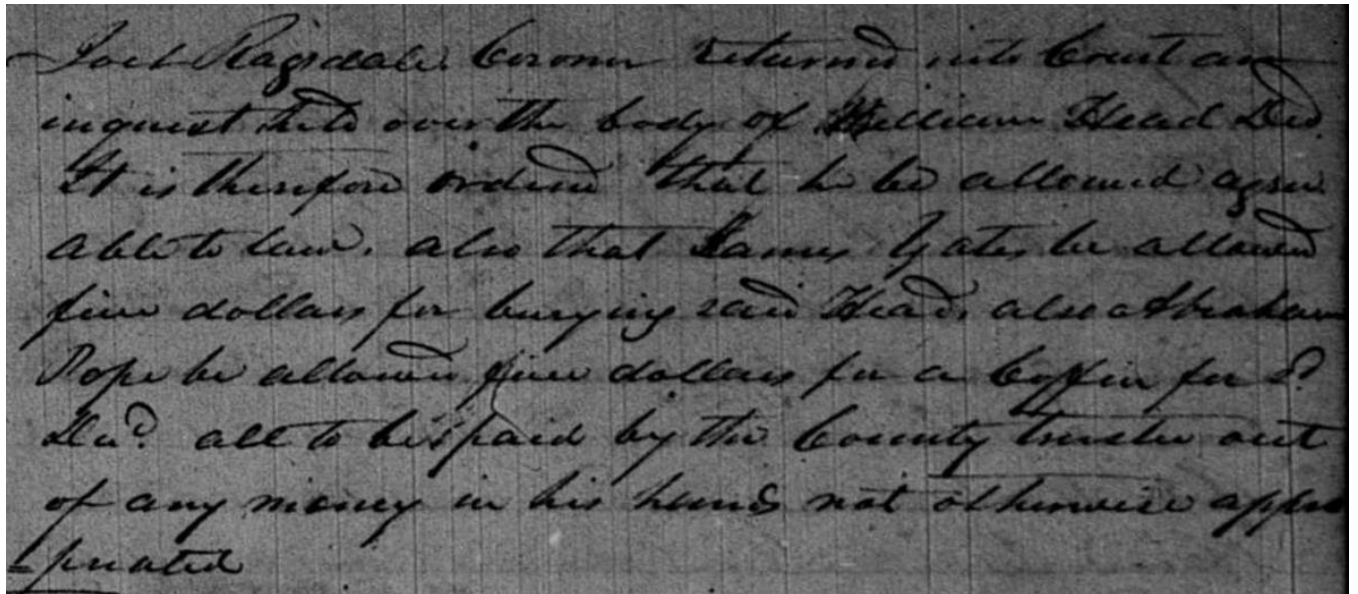 Joel Ragsdale Coroner returned into Court an
inquest held over the body of William Head Decd.
It is therefore ordered that he be allowed agree
able to law. also that James Yates be allowed
five dollars for burying said Head, also Abraham
Pope be allowed five dollars for a Coffin for sd
Decd. all to be paid by the County trustee out
of any money in his hands not otherwise appro
=priated